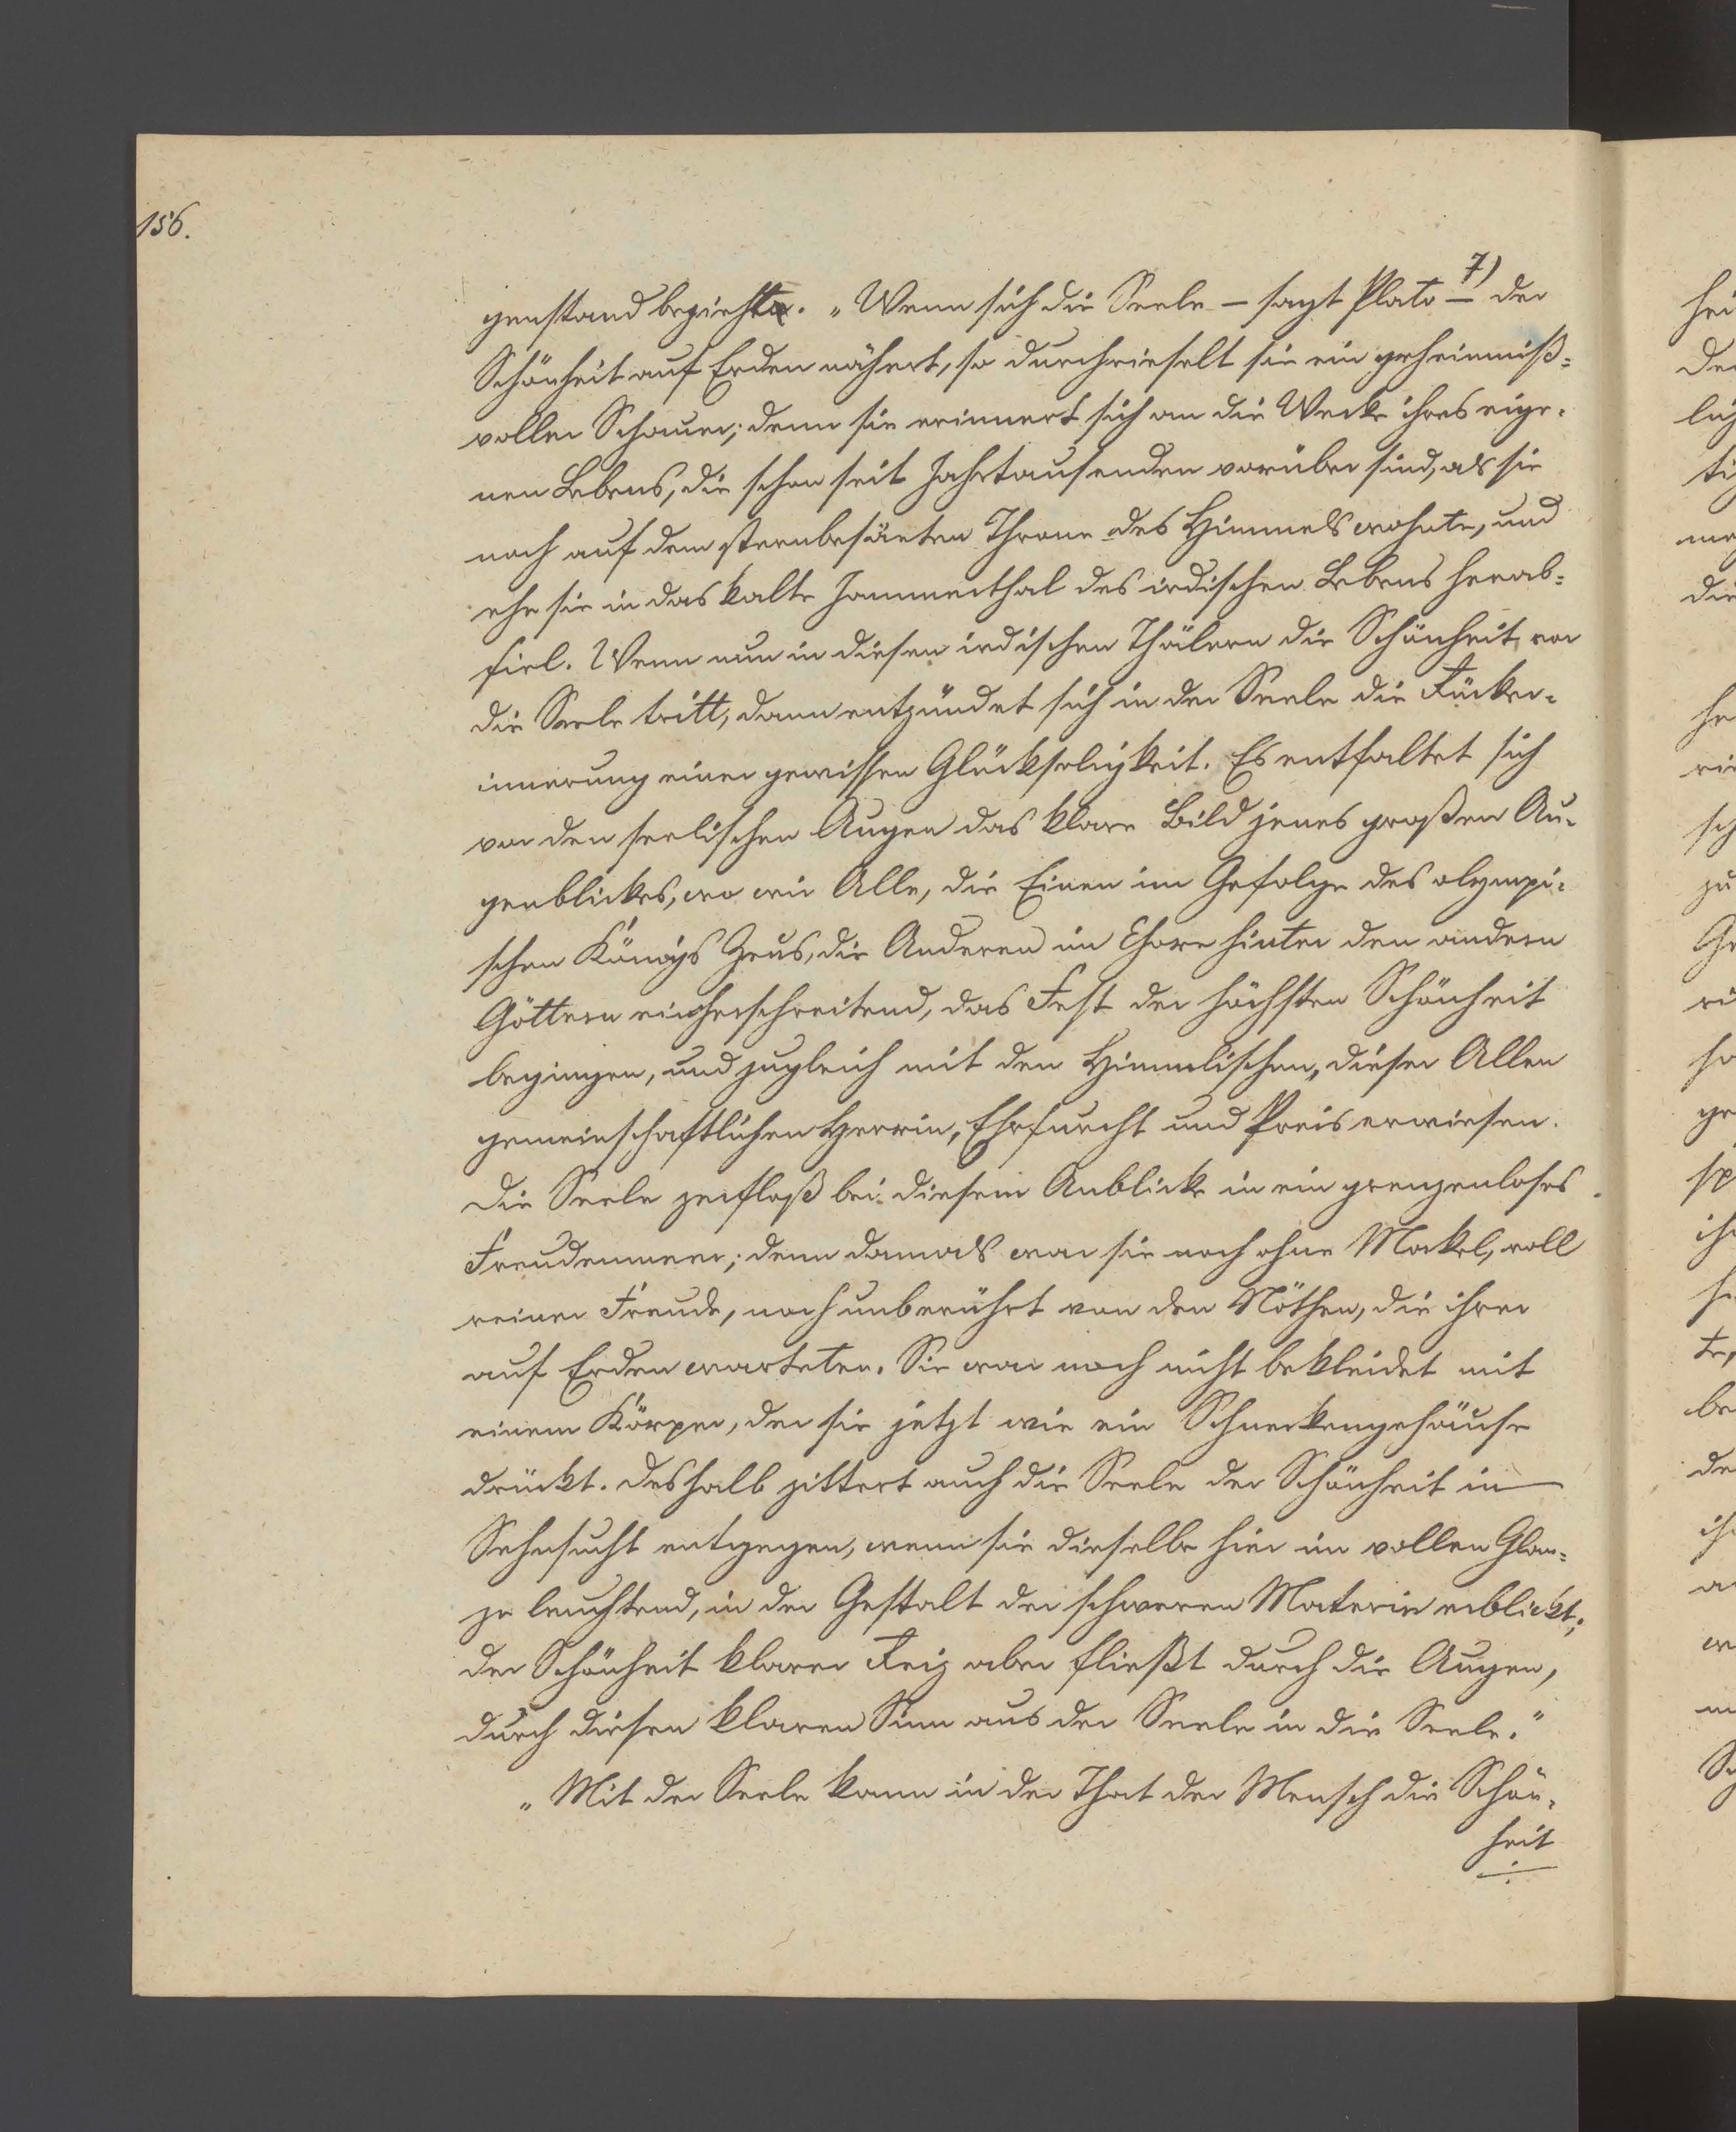 156.
genstand bezieht. „Wenn sich die Seele – sagt Plato – 7) der
Schönheit auf Erden nähert, so durchrieselt sie ein geheimniß=
voller Schauer; denn sie erinnert sich an die Werke ihres eige=
nen Lebens, die schon seit Jahrtausenden vorüber sind, als sie
noch auf dem sternbesäeten Throne des Himmels wohnte, und
ehe sie in das kalte Jammerthal des irdischen Lebens herab=
fiel. Wenn nun in diesen irdischen Thälern die Schönheit vor
die Seele tritt, dann entzündet sich in der Seele die Rücker=
innerung einer gewissen Glückseligkeit. Es entfaltet sich
vor den seelischen Augen das klare Bild jenes großen Au=
genblickes, wo wir Alle, die Einen im Gefolge des olympi=
schen Königs Zeus, die Anderen im Chore hinter den andern
Göttern einherschreitend, das Fest der höchsten Schönheit
begingen, und zugleich mit den Himmlischen, dieser Allen
gemeinschaftlichen Herrin, Ehrfurcht und Preis erwiesen.
Die Seele zerfloß bei diesem Anblicke in ein grenzenloses
Freudenmeer; denn damals war sie noch ohne Makel, voll
reiner Freude, noch unberührt von den Nöthen, die ihrer
auf Erden warteten. Sie war noch nicht bekleidet mit
einem Körper, der sie jetzt wie ein Schneckengehäuse
drückt. Deshalb zittert auch die Seele der Schönheit in
Sehnsucht entgegen, wenn sie dieselbe hier im vollen Glan=
ze leuchtend, in der Gestalt der schweren Materie erblickt;
der Schönheit klarer Reiz aber fließt durch die Augen,
durch diesen klaren Sinn aus der Seele in die Seele.“
„Mit der Seele kann in der That der Mensch die Schön=
heit